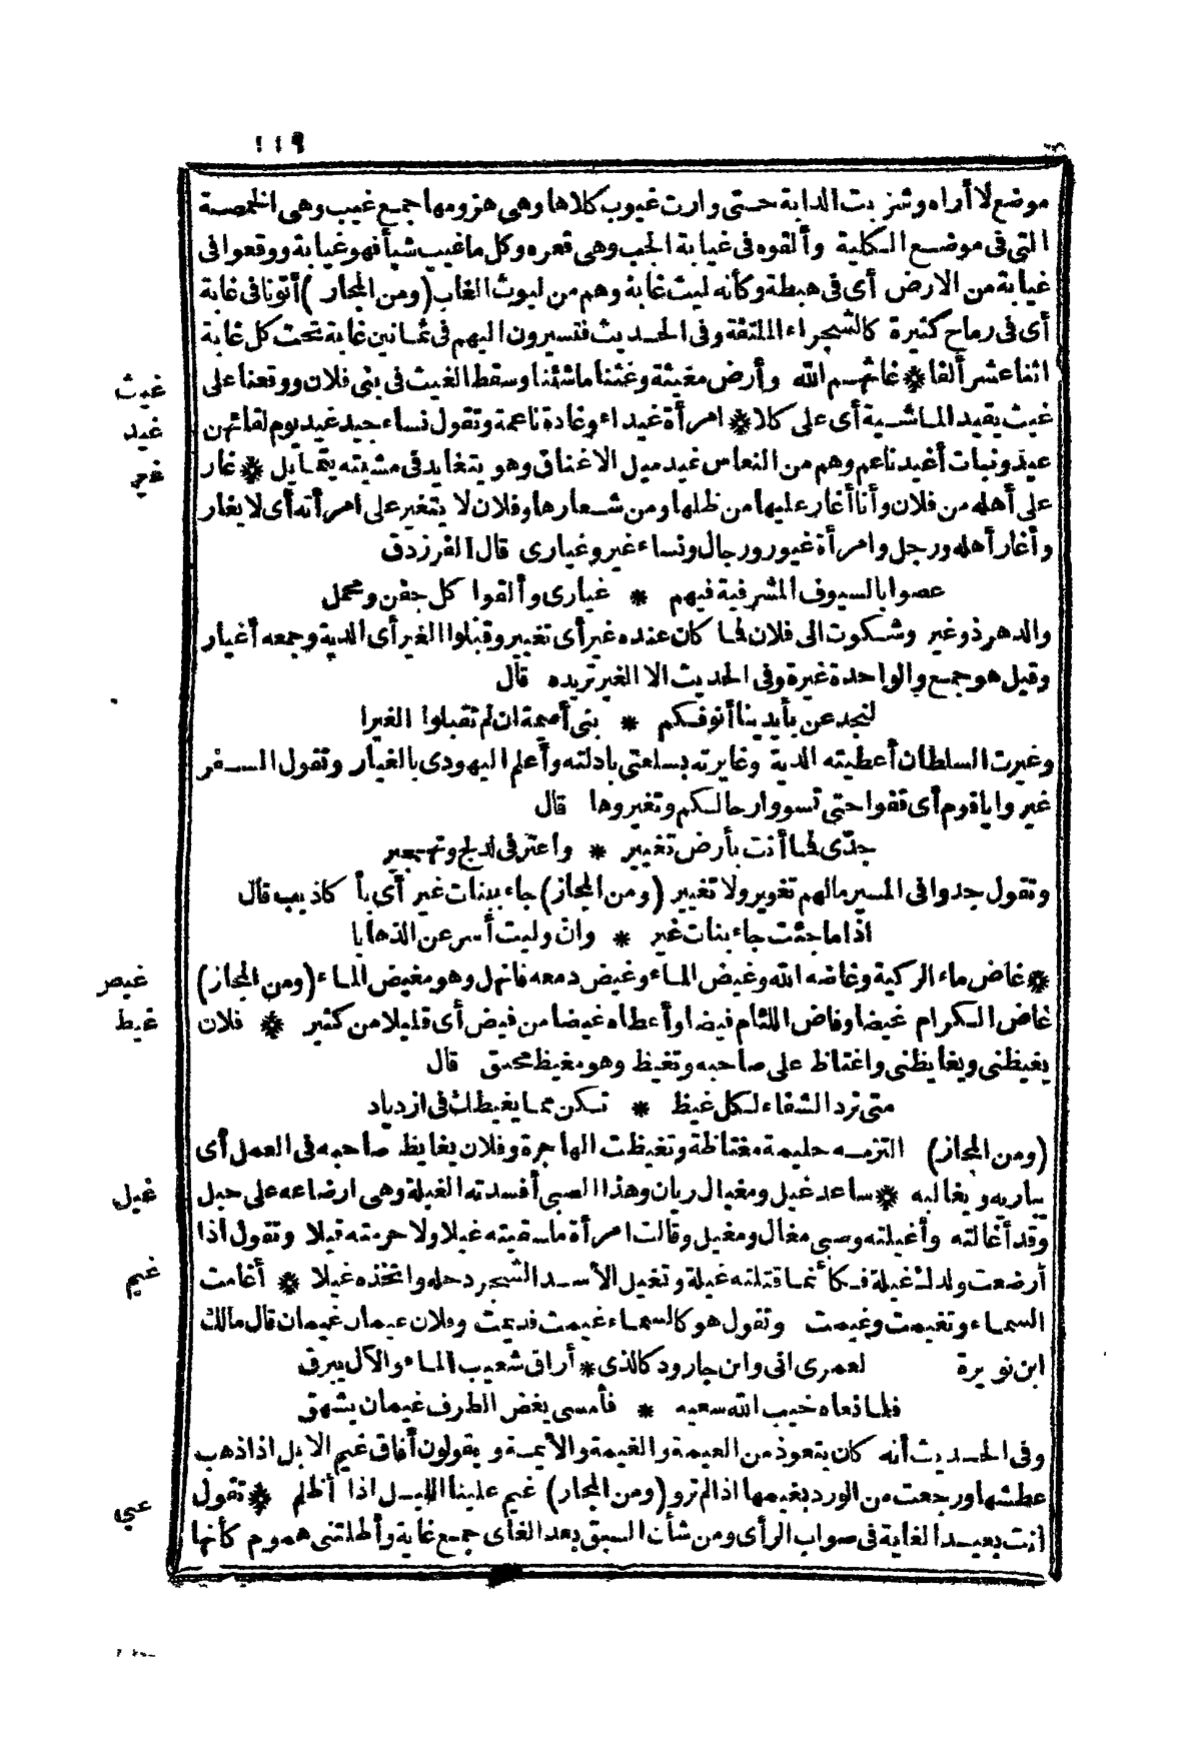 ١١٩
موضع لا أراه وشربت الدابة حتى وارت غيوب كلاها وهى هزومها جمع غيب وهى الخمصة
التى فى موضع الكلية وألقوه فى غيابة الجب وهى قعره وكل ما غيب شيأ فهو غيابة ووقعوا فى
غيابة من الارض أى فى هبطة وكأنه ليث غابة وهم من ليوث الغاب (ومن المجاز) أتونا فى غابة
أى فى رماح كثيرة كالشجراء الملتفة وفى الحديث فتسيرون اليهم فى ثمانين غاية تحت كل غاية
اثنا عشر ألفا * غاثهم الله وأرض مغيثة وغثنا ماشئنا وسقط الغيث فى بنى فلان ووقعنا على
غيث
غيث يقيد الماشية أى على كلا * امرأة غيداء وغادة ناعمة وتقول نساء جيد غيد يوم لقائهن
غيد
عيد ونبات أغيد ناعم وهم من النعاس غيد ميل الاعناق وهو يتغايد فى مشيته يتمايل * غار
غير
على أهله من فلان وأنا أغار عليها من ظلها ومن شعارها وفلان لا يتغير على امرأته أى لا يغار
وأغار أهله ورجل وامرأة غيور ورجال ونساء غير وغيارى قال الفرزدق
عصوا بالسيوف المشرفية فيهم * غيارى وألقوا كل جفن ومحمل
والدهر ذو غير وشكوت الى فلان فما كان عنده غير أى تغيير وقبلوا الغير أى الدية وجمعه أغيار
وقيل هو جمع والواحدة غيرة وفى الحديث الا الغير تريده قال
لنجدعن بأيدينا أنوفكم * بنى أميمة ان لم تقبلوا الغيرا
وغيرت السلطان أعطيته الدية وغايرته بسلعتى بادلته وأعلم اليهودى بالغيار وتقول السفر
غيروا ياقوم أى قفوا حتى تسووا رحالكم وتغيروها قال
جدّى فما أنت بأرض تغيير * واعترفى لدلج وتهجير
وتقول جدوا فى المسير مالهم تغوير ولا تغيير (ومن المجاز) جاء ببنات غير أى بأكاذيب قال
اذا ما جئت جاء بنات غير * وان وليت أسرعن الذهابا
* غاض ماء الركية وغاضه الله وغيض الماء وغيض دمعه فانهل وهو مغيض الماء (ومن المجاز)
غيض
غاض الكرام غيضا وفاض اللئام فيضا وأعطاه غيضا من فيض أى قليلا من كثير * فلان
غيظ
يغيظنى ويغايظنى واغتاظ على صاحبه وتغيظ وهو مغيظ محنق قال
متى ترد الشفاء لكل غيظ * تكن مما يغيظك فى ازدياد
(ومن المجاز) التزمه حليمة مغتاظة وتغيظت الهاجرة وفلان يغايظ صاحبه فى العمل أى
يباريه ويغالبه * ساعد غيل ومغيال ريان وهذا الصبى أفسدته الغيلة وهى ارضاعه على حبل
غيل
وقد أغالته وأغيلته وصبى مغال ومغيل وقالت امرأة ما سقيته غيلا ولا حرمته قيلا وتقول اذا
أرضعت ولدك غيلة فكأنما قتلته غيلة وتغيل الأسد الشجر دخله واتخذه غيلا * أغامت
غيم
السماء وتغيمت وغيمت وتقول هو كالسماء غيمت فديمت وفلان عيمان غيمان قال مالك
ابن نويرة لعمرى انى وابن جارود كالذى * أراق شعيب الماء والآل يبرق
فلما نعاه خيب الله سعيه * فأمسى يغض الطرف غيمان يشهق
وفى الحديث أنه كان يتعوذ من العيمة والغيمة والأيمة ويقولون أفاق غيم الابل اذا ذهب
عطشها ورجعت من الورد بغيمها اذا لم ترو (ومن المجاز) غيم علينا الليل اذا أظلم * تقول
غيى
أنت بعيد الغاية فى صواب الرأى ومن شأن السبق بعد الغاى جمع غاية وأظلتنى هموم كأنها